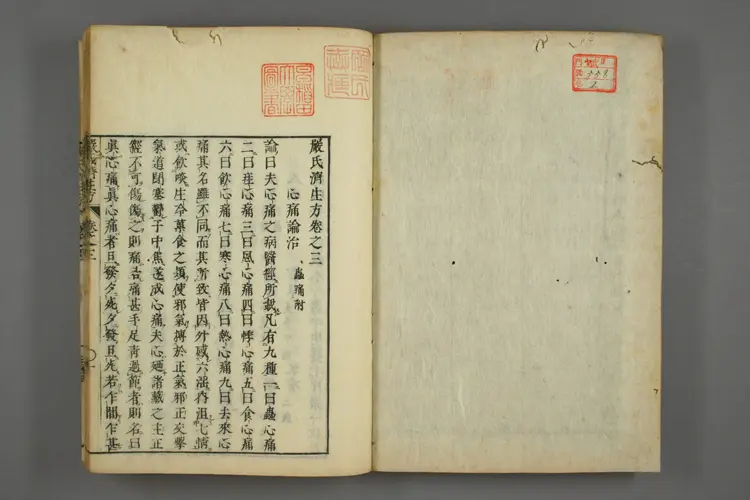 嚴氏濟生方卷之三
心痛論治 蟲痛附
論曰夫心痛之病醫經所載凡有九種一曰蟲心痛
二曰疰心痛三曰風心痛四曰悸心痛五曰食心痛
六曰飲心痛七曰寒心痛八曰熱心痛九曰去來心
痛其名雖不同而其所致皆因外感六淫内沮七情
或飲啖生冷菓食之類使邪氣搏於正氣邪正交擊
氣道閉塞鬱于中焦遂成心痛夫心廼諸藏之主正
經不可傷傷之則痛若痛甚手足青過節者則名曰
眞心痛眞心痛者旦發夕死夕發旦死若乍間乍甚
早稲田大學圖書